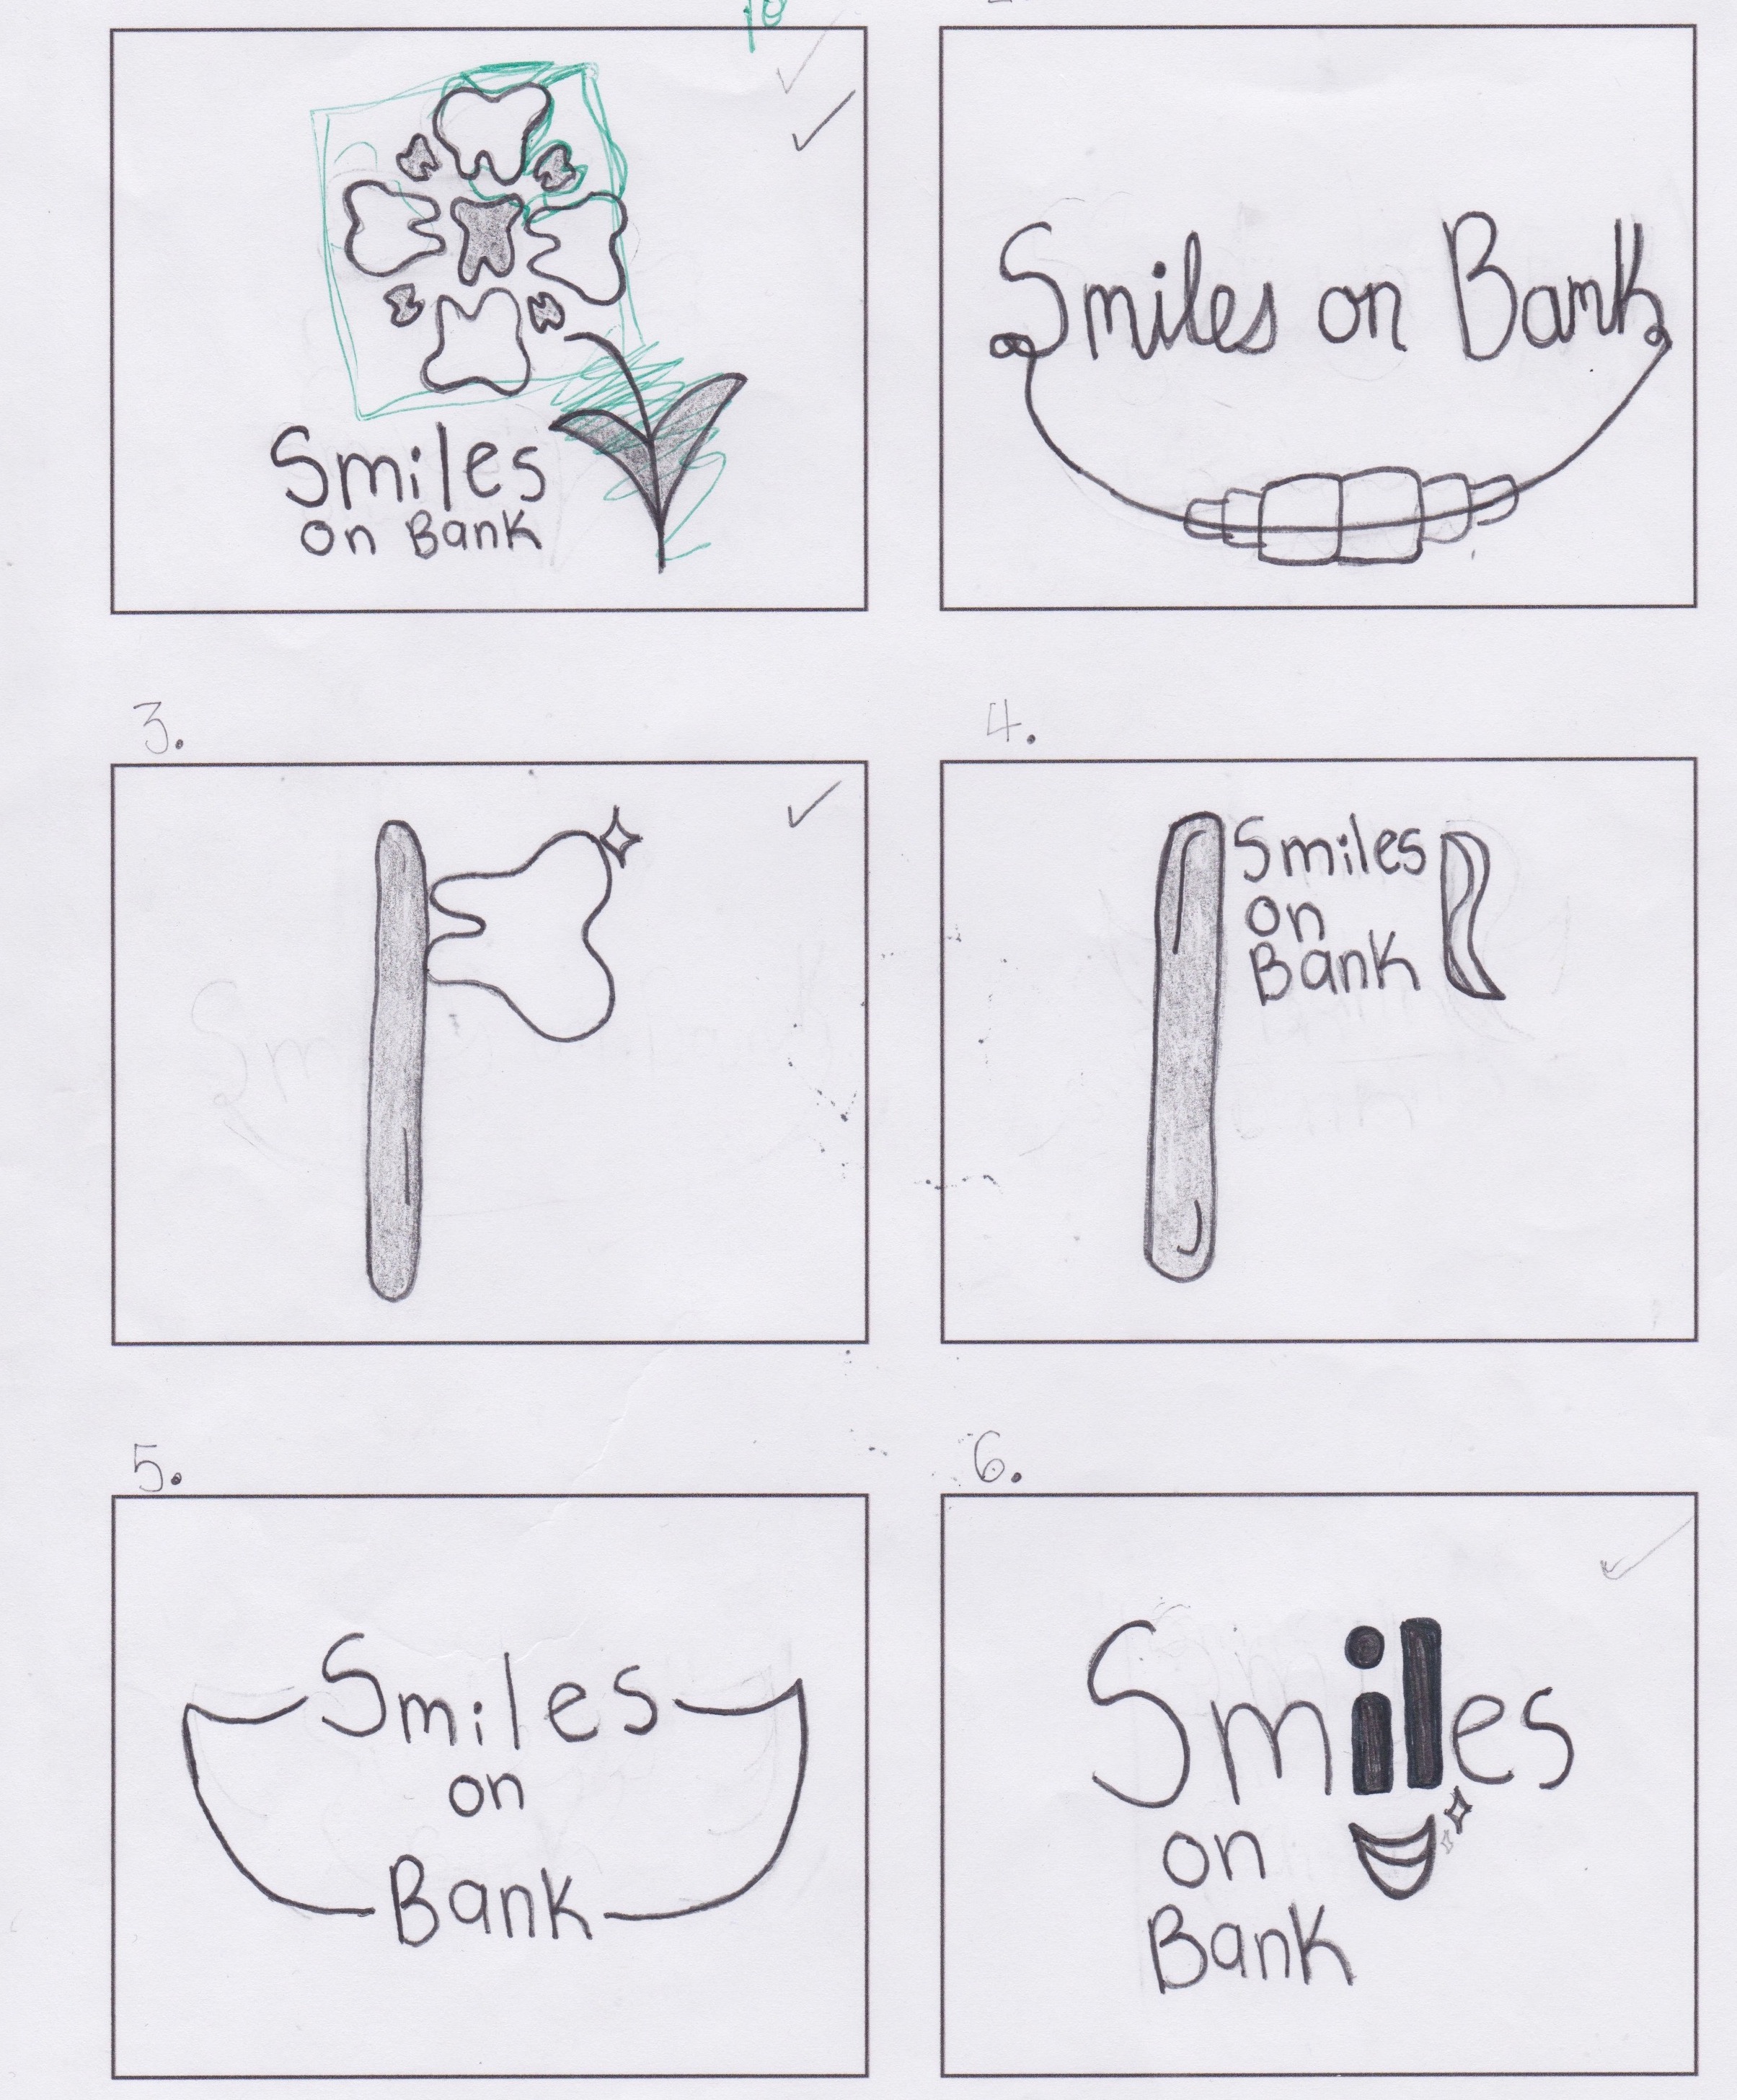 Smiles
on Bank
Smiles on Bank
3.
4.
Smiles
on
Bank
5.
6.
Smiles
on
Bank
Smiles
on
Bank